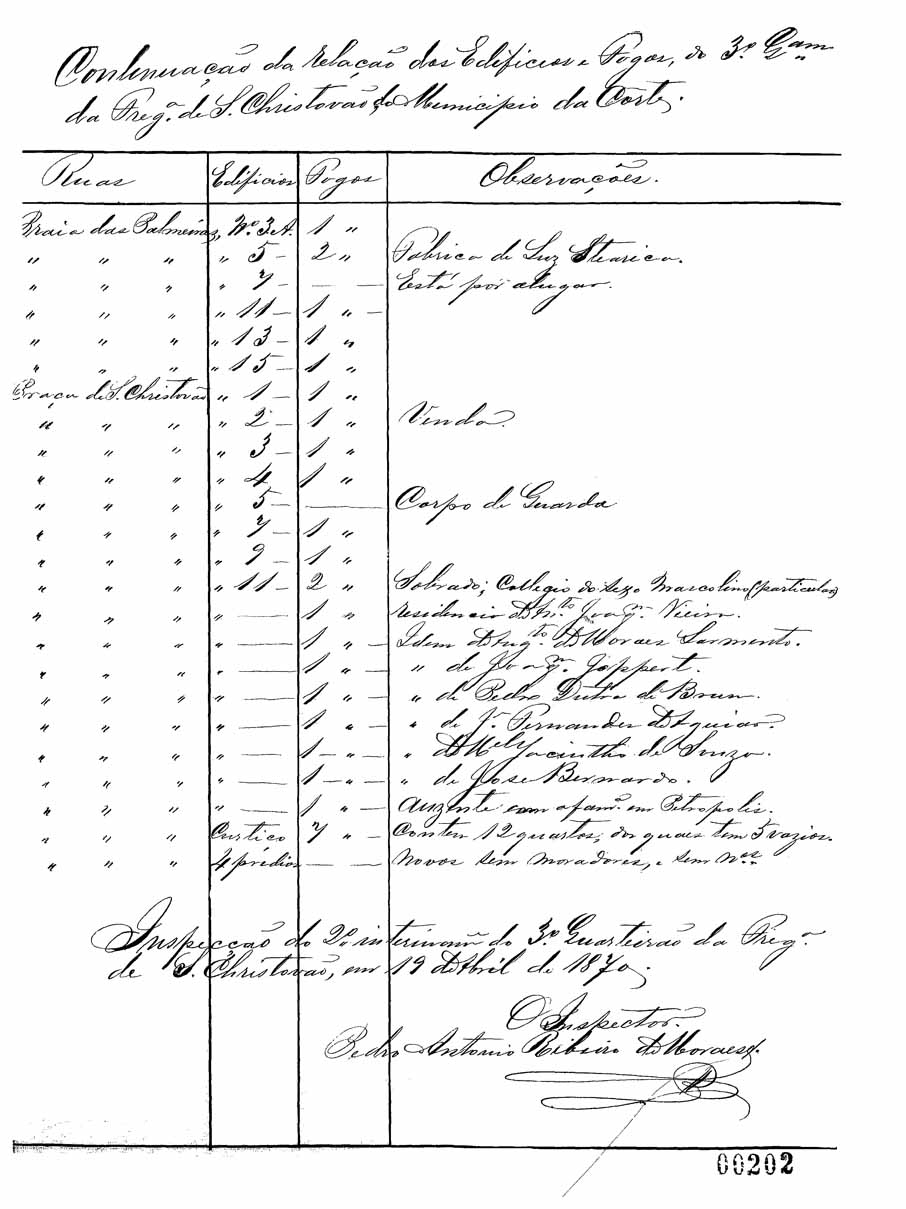 Continuação da relação dos Edificios e Fogos, do 3º Qam
da Fregª. de S. Christovão, do Municipio da Corte.
Ruas Edificios Fogos Observações.
Praia das Palmeiras, Nº. 3A. 1 "
" " " " 5 - 2 " Fabrica de Luz Stearica.
" " " " 7 - — — Está por alugar.
" " " " 11 - 1 " -
" " " " 13 - 1 "
" " " " 15 - 1 "
Praça de S. Christovão " 1 - 1 "
" " " " 2 - 1 " Venda.
" " " " 3 - 1 "
" " " " 4 - 1 "
" " " " 5 - — Corpo de Guarda
" " " " 7 - 1 "
" " " " 9 - 1 "
" " " " 11 - 2 " Sobrado; Collegio do sexo Mascolino (particular)
" " " " — 1 " residencia Joaqm. Vieira.
" " " " — 1 " - Idem de Moraes Sarmento.
" " " " — 1 " - " de Joaqm. Joppert.
" " " " — 1 " - " de Pedro Dutra de Brun.
" " " " — 1 " - " de Jº. Fernandes d'Aguiar.
" " " " — 1 - " - " de Mel Jacintho de Souza.
" " " " — 1 - " - " de Jose Bernardo.
" " " " — 1 " - Auzente com a famª. em Petropolis.
" " " Curtiço 7 " - Contem 12 quartos, dos quaes tem 5 vazios.
" " " 4 predios — — Novos sem moradores, e sem Nos.
Inspecção do 2º do 3º Quarteirão da Fregª.
de S. Christovão, em 19 d'Abril de 1870.
O Inspector.
Pedro Antonio Ribeiro de Moraes.
00202